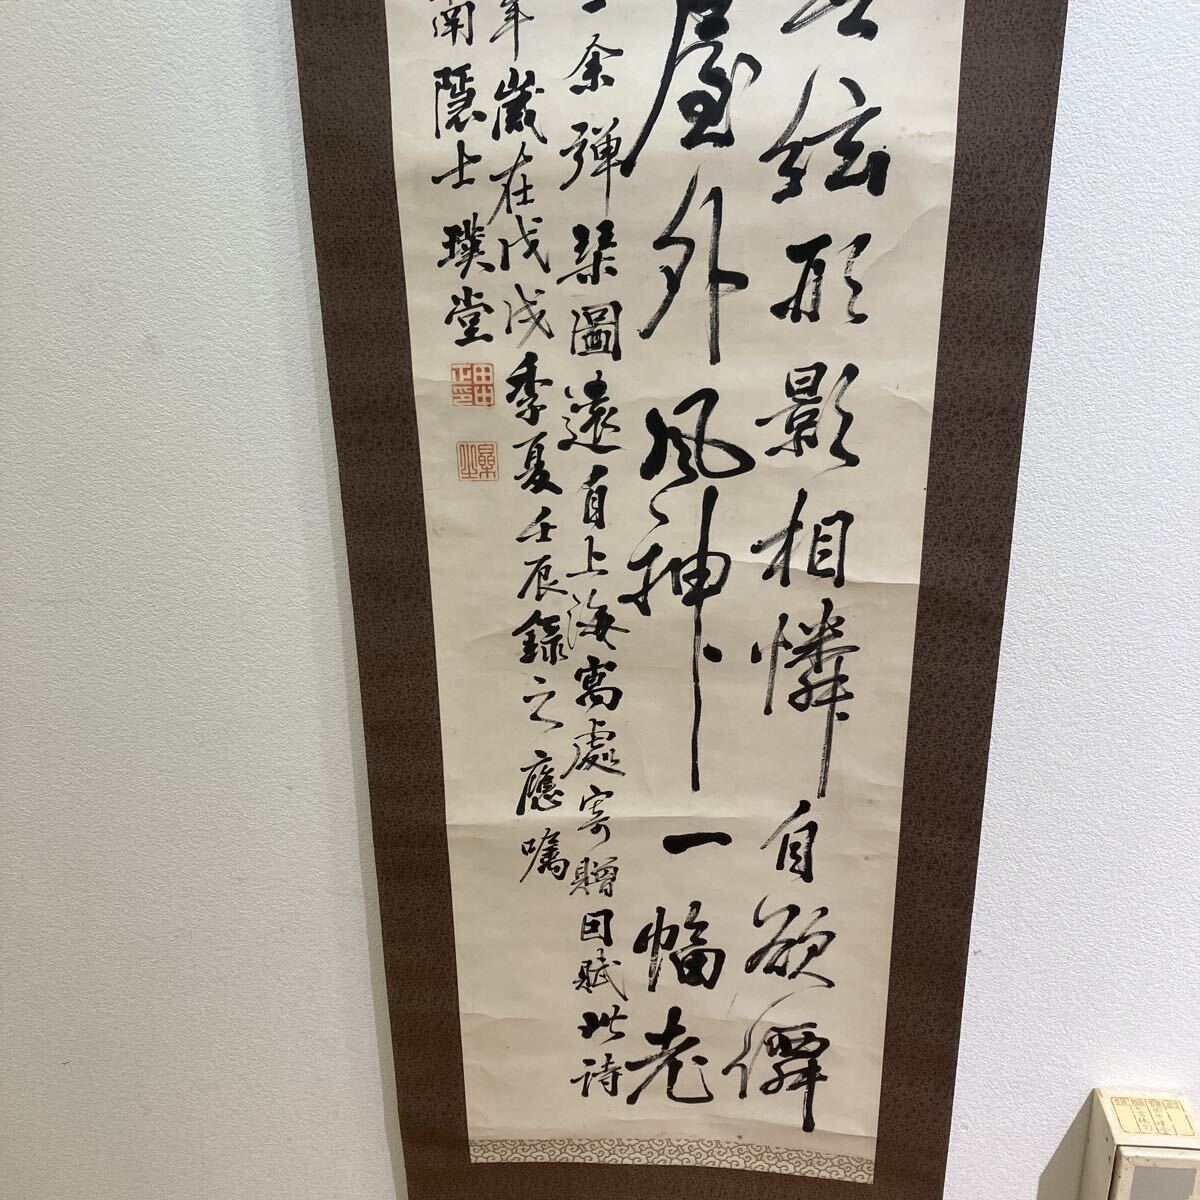 絃形影相憐自欲僊
屋外風神一幅老
余弾琹圖遠自上海寓處寄贈因賦此詩
年歲在戊戌季夏壬辰錄之應囑
南隱士璞堂